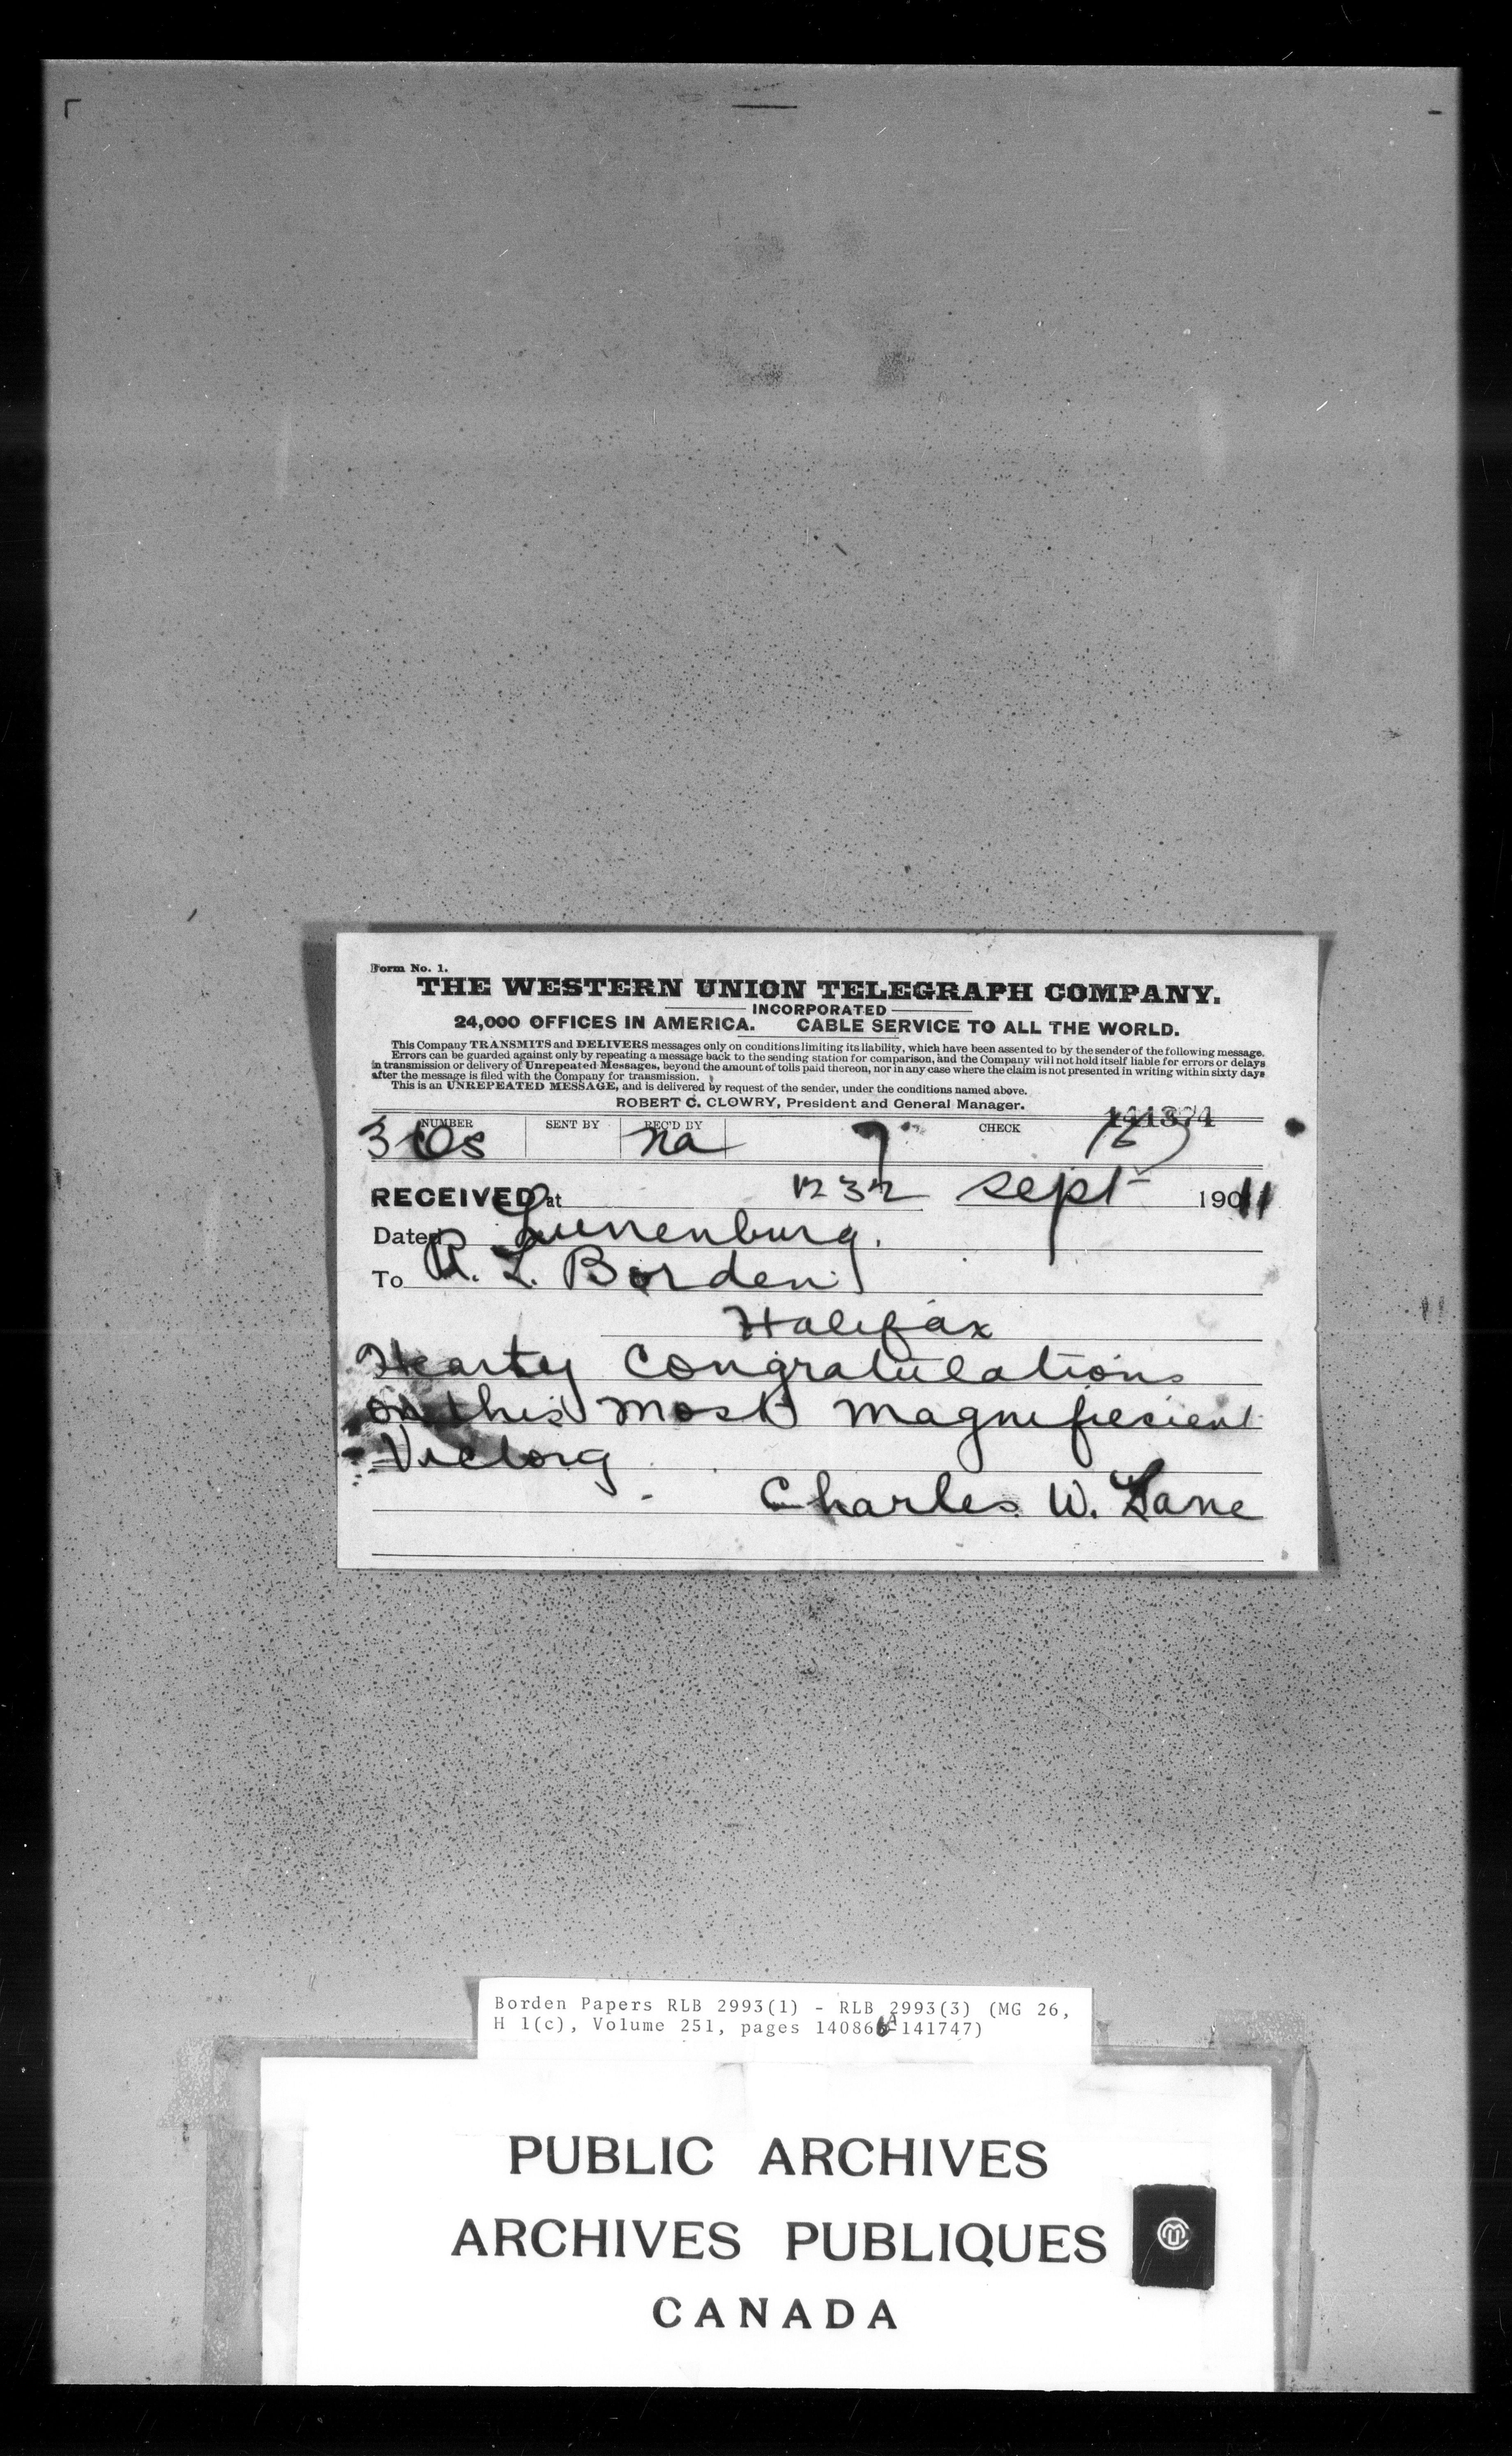 Form No. 1.
THE WESTERN UNION TELEGRAPH COMPANY.
INCORPORATED
24,000 OFFICES IN AMERICA. CABLE SERVICE TO ALL THE WORLD.
This Company TRANSMITS and DELIVERS messages only on conditions limiting its liability, which have been assented to by the sender of the following message.
Errors can be guarded against only by repeating a message back to the sending station for comparison, and the Company will not hold itself liable for errors or delays
in transmission or delivery of Unrepeated Messages, beyond the amount of tolls paid thereon, nor in any case where the claim is not presented in writing within sixty days
after the message is filed with the Company for transmission.
This is an UNREPEATED MESSAGE, and is delivered by request of the sender, under the conditions named above.
ROBERT C. CLOWRY, President and General Manager.
NUMBER SENT BY REC'D BY CHECK
Na 7
RECEIVED at 1232 Sept 1911
Dated Lunenburg.
To R. L. Borden
Halifax
Hearty Congratulations
on this most magnificient
Victory
Charles W. Lane
Borden Papers RLB 2993(1) - RLB 2993(3) (MG 26,
H 1(c), Volume 251, pages 140866A-141747)
PUBLIC ARCHIVES
ARCHIVES PUBLIQUES
CANADA